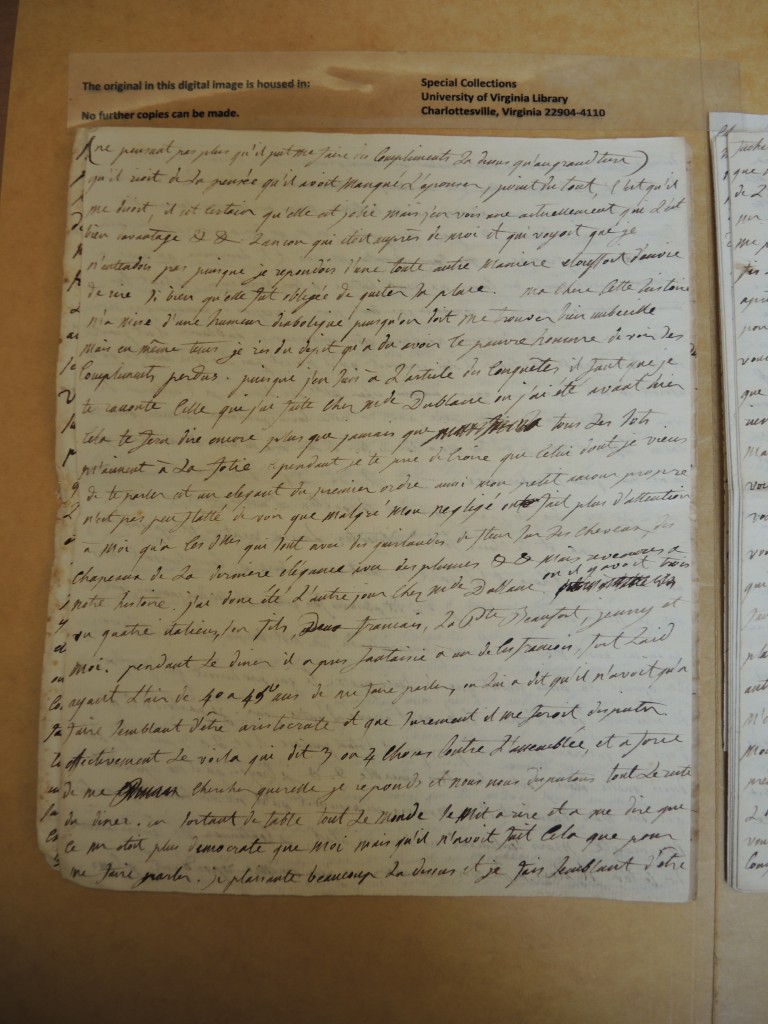 The original in this digital image is housed in:
No further copies can be made.
Special Collections
University of Virginia Library
Charlottesville, Virginia 22904-4110
(ne pensant pas plus qu'il put me faire des Compliments La dessus qu'au grand turc)
qu'il rioit de La pensée qu'il avoit manqué L'epouser, point du tout, C'est qu'il
me disoit, il est certain qu'elle est jolie mais j'en vois une actuellement qui L'est
bien davantage & & qui étoit auprès de moi et qui voyoit que je
n'entendois pas puisque je repondois d'une toute autre maniere etouffoit d'envie
de rire si bien qu'elle fut obligée de quitter sa place. ma chere Cette histoire
m'a mise d'une humeur diabolique puisqu'on doit me trouver bien imbecille
mais en même tems je ris du depit qu'a du avoir le pauvre homme de voir ses
Compliments perdus. puisque j'en suis à L'article des Conquêtes il faut que je
te raconte Celle que j'ai faite chez Mde Dublaire ou j'ai été avant hier
Cela te fera dire encore plus que jamais que tous Les sots
m'aiment à La folie cependant je te prie de Croire que Celui dont je viens
de te parler est un elegant du premier ordre aussi mon petit amour propre
n'est pas peu flatté de voir que malgré mon negligé on fait plus d'attention
à moi qu'a Les qui sont avec des guirlandes de fleur sur Les cheveux, des
chapeaux de La derniere élégance avec des plumes & & mais revenons a
notre histoire. j'ai donc été L'autre jour chez Mde Dublaire ou il y avoit trois
ou quatre italiens, son fils, francais, La Beaufort, jenny et
moi. pendant Le diner il a pris fantaisie a un de Ces francois, fort Laid
ayant L'air de 40 a 45 ans de me faire parler, on Lui a dit qu'il n'avoit qu'a
faire semblant d'être aristocrate et que surement il me feroit disputer
effectivement Le voila qui dit 3 ou 4 choses Contre L'assemblée, et a force
de me chercher querelle je reponds et nous nous disputons tout Le reste
du diner. en sortant de table tout Le monde se mit a rire et a me dire que
Ce mr etoit plus democrate que moi mais qu'il n'avoit fait Cela que pour
me faire parler. je plaisante beaucoup La dessus et je fais semblant d'être